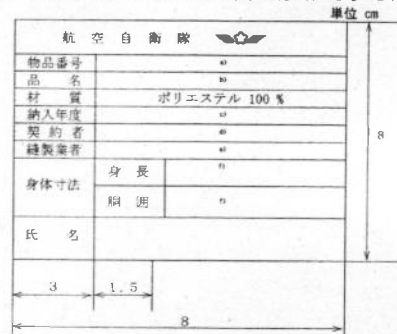 単位 cm
航空自衛隊
物品番号 a)
品名 b)
材質 ポリエステル 100 %
納入年度 c)
契約者 d)
縫製業者 e)
身体寸法 身長 f)
胴囲 f)
氏名
8
3 1.5
8